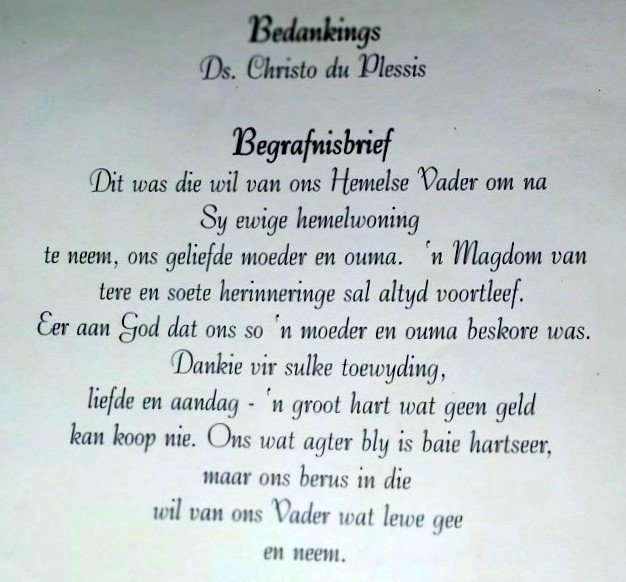 Bedankings
Ds. Christo du Plessis
Begrafnisbrief
Dit was die wil van ons Hemelse Vader om na
Sy ewige hemelwoning
te neem, ons geliefde moeder en ouma. 'n Magdom van
tere en soete herinneringe sal altyd voortleef.
Eer aan God dat ons so 'n moeder en ouma beskore was.
Dankie vir sulke toewyding,
liefde en aandag - 'n groot hart wat geen geld
kan koop nie. Ons wat agter bly is baie hartseer,
maar ons berus in die
wil van ons Vader wat lewe gee
en neem.